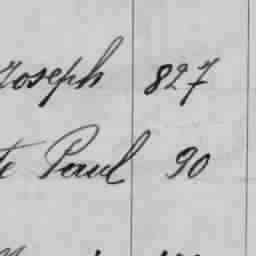 Joseph 827
te Paul 90